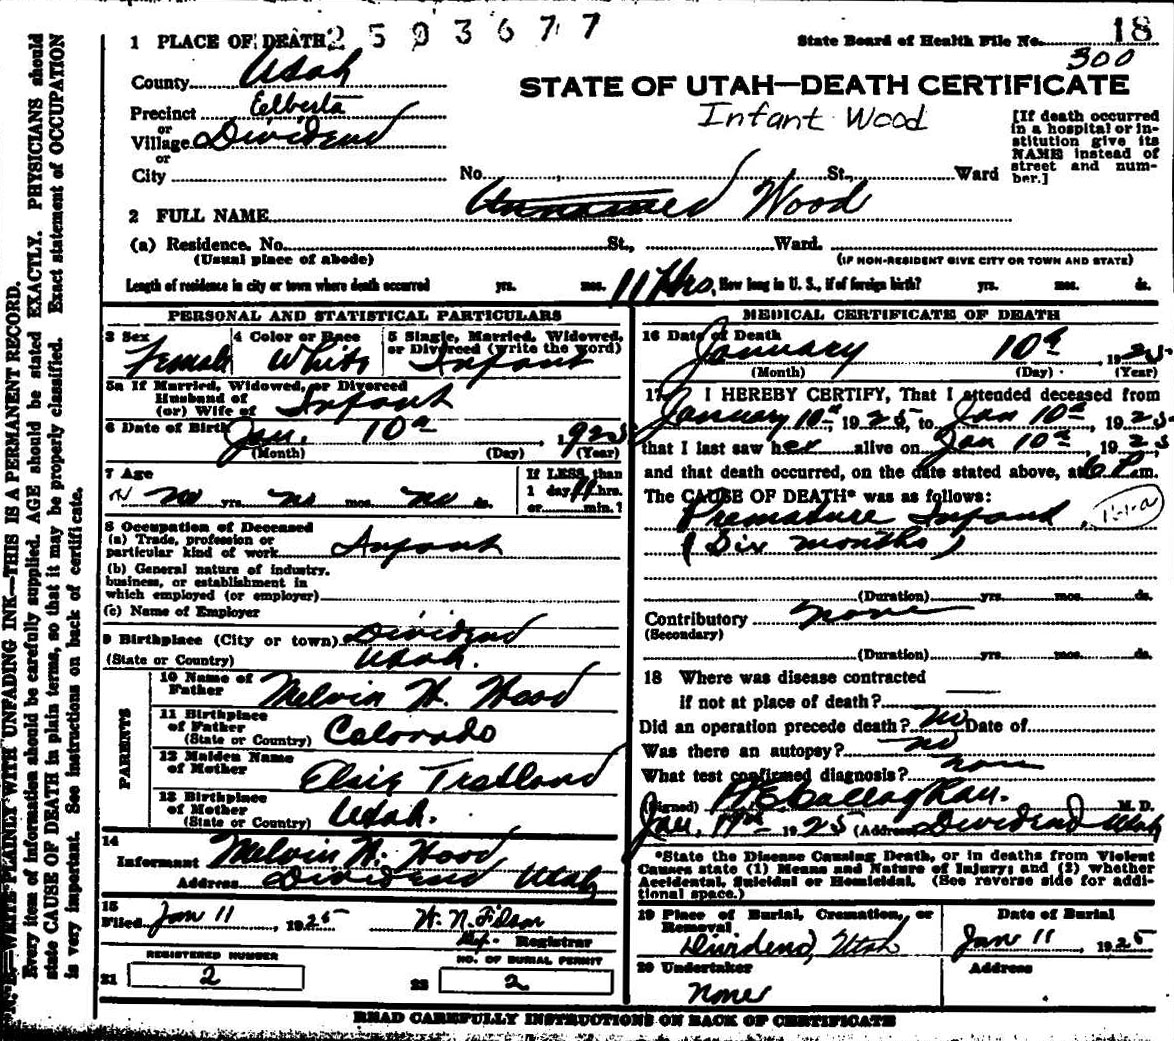 2 5 0 3 6 7 7
18
State Board of Health File No.
300
1 PLACE OF DEATH
County Utah
Precinct Elberta
or
Village Dividend
or
City
STATE OF UTAH—DEATH CERTIFICATE
Infant Wood
[If death occurred in a hospital or institution give its NAME instead of street and number.]
No. St., Ward
2 FULL NAME Unnamed Wood
(a) Residence. No. St., Ward.
(Usual place of abode) (IF NON-RESIDENT GIVE CITY OR TOWN AND STATE)
Length of residence in city or town where death occurred yrs. mos. 11 Hrs. How long in U. S., if of foreign birth? yrs. mos. ds.
PERSONAL AND STATISTICAL PARTICULARS
3 Sex Female
4 Color or Race White
5 Single, Married, Widowed, or Divorced (write the word) Infant
5a If Married, Widowed, or Divorced
Husband of
(or) Wife of Infant
6 Date of Birth Jan. 10th 1925
(Month) (Day) (Year)
7 Age no yrs. no mos. no ds.
If LESS than
1 day 11 hrs.
or min.?
8 Occupation of Deceased
(a) Trade, profession or
particular kind of work Infant
(b) General nature of industry,
business, or establishment in
which employed (or employer)
(c) Name of Employer
9 Birthplace (City or town) Dividend
(State or Country) Utah.
PARENTS
10 Name of
Father Melvin W. Wood
11 Birthplace
of Father
(State or Country) Colorado
12 Maiden Name
of Mother Elsie
13 Birthplace
of Mother
(State or Country) Utah.
14
Informant Melvin W. Wood
Address Dividend Utah
15
Filed Jan 11, 1925 W. N.
Dep. Registrar
REGISTERED NUMBER
21 2
NO. OF BURIAL PERMIT
22 2
MEDICAL CERTIFICATE OF DEATH
16 Date of Death
January 10th 1925
(Month) (Day) (Year)
17 I HEREBY CERTIFY, That I attended deceased from
January 10th, 1925, to Jan 10th, 1925,
that I last saw her alive on Jan 10th, 1925,
and that death occurred, on the date stated above, at 6 P.m.
The CAUSE OF DEATH* was as follows:
Premature Infant
(Six months)
(Duration) yrs. mos. ds.
Contributory none
(Secondary)
(Duration) yrs. mos. ds.
18 Where was disease contracted
if not at place of death?
Did an operation precede death? no Date of
Was there an autopsy? no
What test confirmed diagnosis? none
(Signed) Callaghan. M. D.
Jan, 1925 (Address) Dividend Utah
*State the Disease Causing Death, or in deaths from Violent
Causes state (1) Means and Nature of Injury; and (2) whether
Accidental, Suicidal or Homicidal. (See reverse side for addi-
tional space.)
19 Place of Burial, Cremation, or
Removal
Dividend, Utah
Date of Burial
Jan 11 1925
20 Undertaker
None
Address
READ CAREFULLY INSTRUCTIONS ON BACK OF CERTIFICATE
N. B.—WRITE PLAINLY WITH UNFADING INK—THIS IS A PERMANENT RECORD.
Every item of information should be carefully supplied. AGE should be stated EXACTLY. PHYSICIANS should
state CAUSE OF DEATH in plain terms, so that it may be properly classified. Exact statement of OCCUPATION
is very important. See instructions on back of certificate.